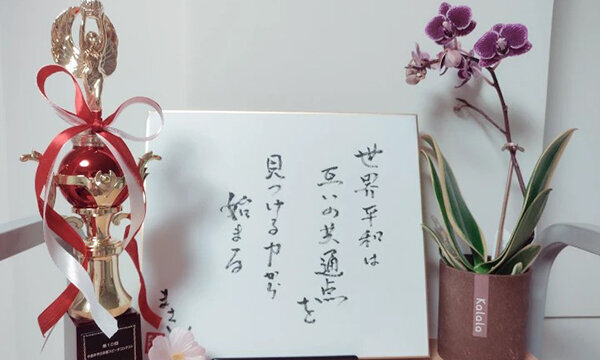 世界平和は
互いの共通点を
見つける力から
始まる
第10回
Kolala